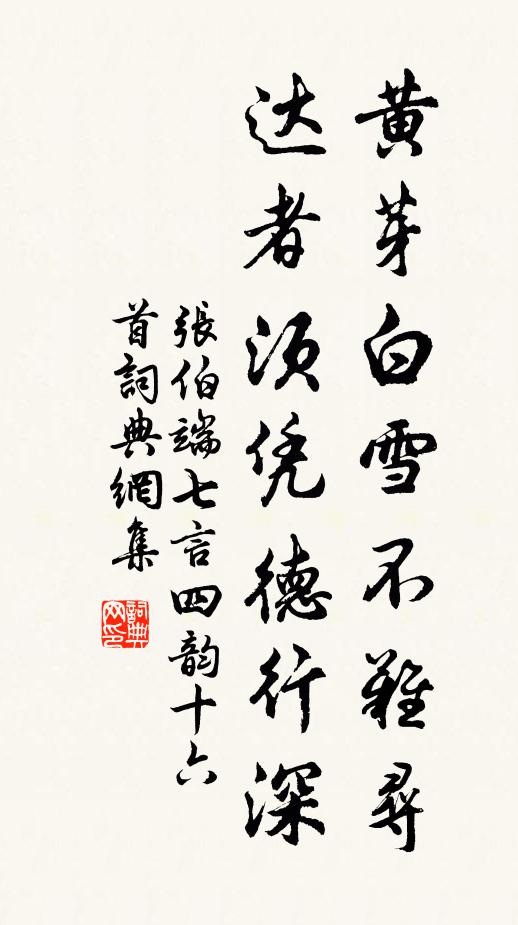 黄芽白雪不難尋
达者须凭德行深
張伯端七言四韵十六
首詞典網集
詞典网印